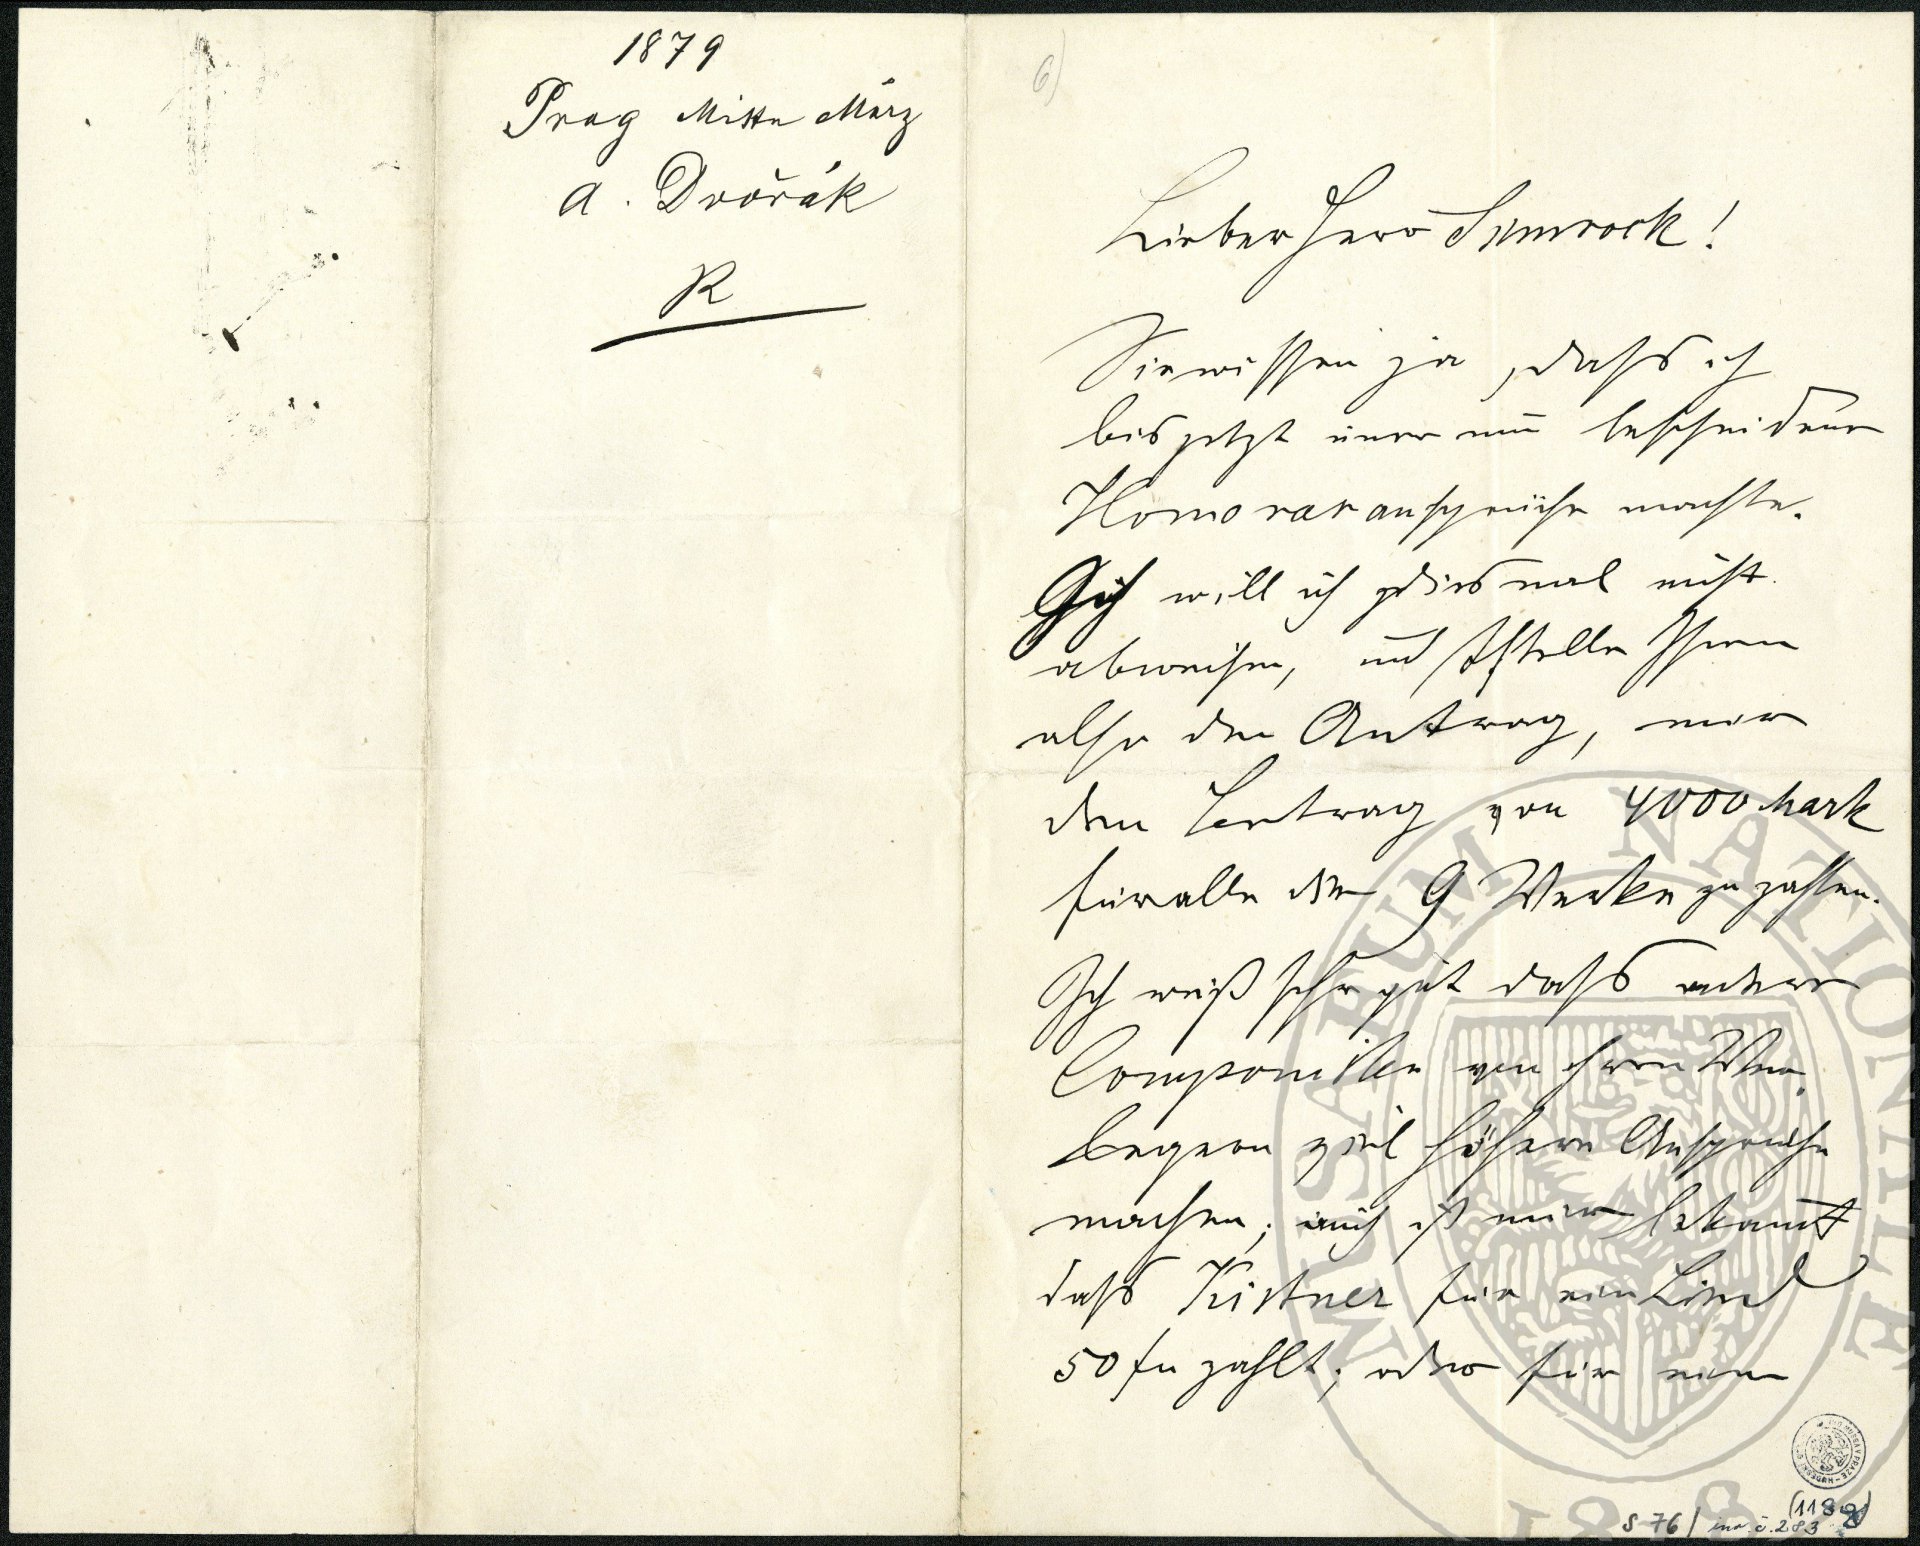 1879
Prag Mitte März
A. Dvořák
R
6)
Lieber Herr Simrock!
Sie wissen ja, dass ich
bis jetzt immer nur bescheidene
Honoraransprüche machte.
will ich diesmal nicht
abweichen, und stelle Ihnen
also den Antrag, mir
den Betrag von 4000 Mark
für alle die 9 Werke zu zahlen.
Ich weiß sehr gut dass andere
Componisten von ihren
viel höhere Ansprüche
machen; auch ist mir bekannt
dass Kistner für ein Lied
50 fr zahlt; oder für einen
MUSAEUM NATIONALE
1818
S 76/ inv. č. 283